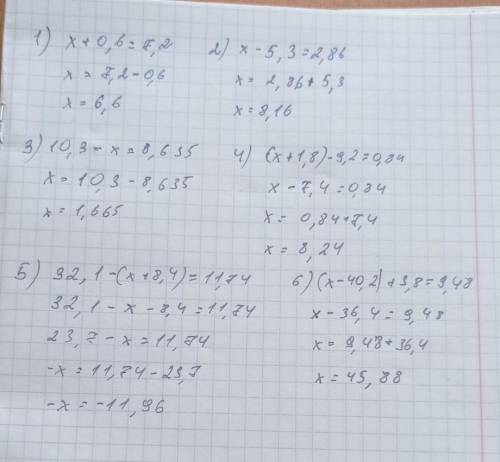 1) x + 0,6 = 7,2
x = 7,2 - 0,6
x = 6,6
2) x - 5,3 = 2,86
x = 2,86 + 5,3
x = 8,16
3) 10,3 - x = 8,635
x = 10,3 - 8,635
x = 1,665
4) (x + 1,8) - 9,2 = 0,84
x - 7,4 = 0,84
x = 0,84 + 7,4
x = 8,24
5) 32,1 - (x + 8,4) = 11,74
32,1 - x - 8,4 = 11,74
23,7 - x = 11,74
-x = 11,74 - 23,7
-x = -11,96
6) (x - 40,2) + 3,8 = 9,48
x - 36,4 = 9,48
x = 9,48 + 36,4
x = 45,88